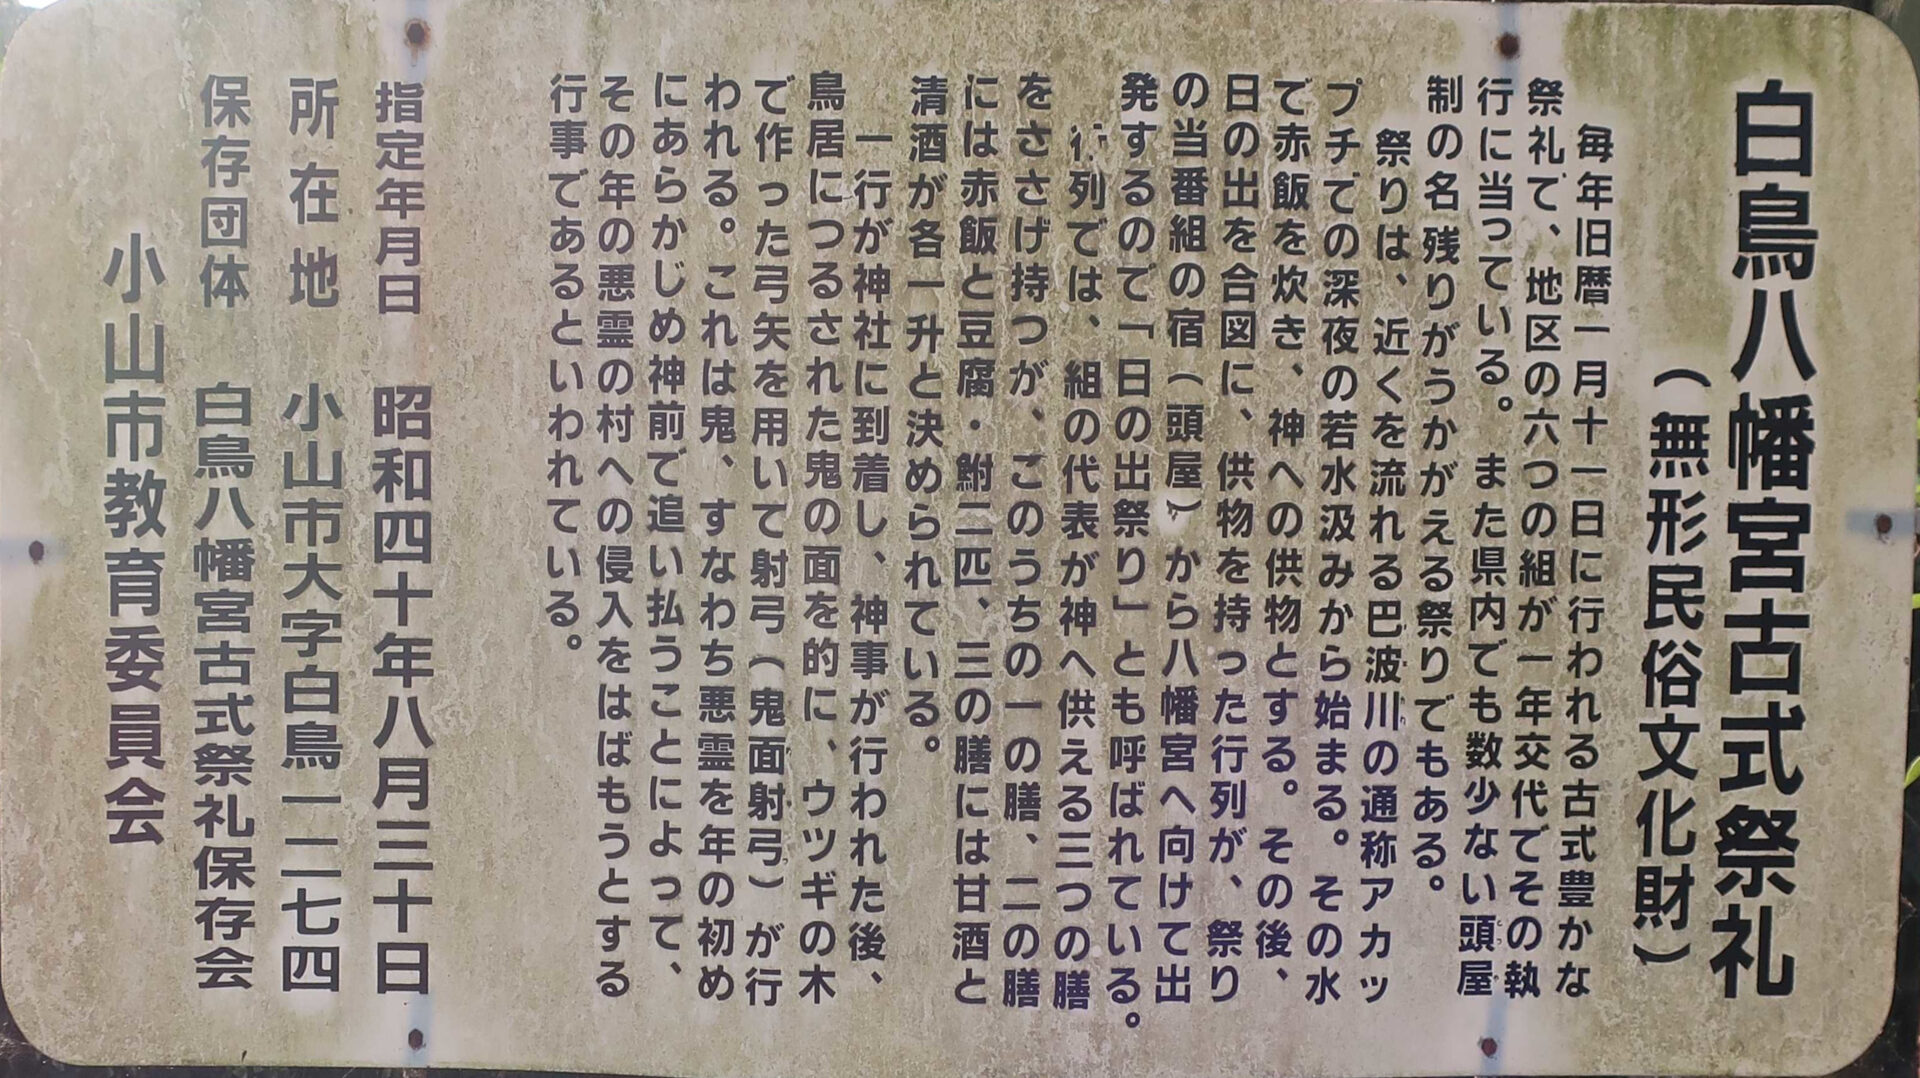 白鳥八幡宮古式祭礼
（無形民俗文化財）
毎年旧暦一月十一日に行われる古式豊かな
祭礼で、地区の六つの組が一年交代でその執
行に当っている。また県内でも数少ない頭屋
制の名残りがうかがえる祭りでもある。
祭りは、近くを流れる巴波川の通称アカッ
プチでの深夜の若水汲みから始まる。その水
で赤飯を炊き、神への供物とする。その後、
日の出を合図に、供物を持った行列が、祭り
の当番組の宿（頭屋）から八幡宮へ向けて出
発するので「日の出祭り」とも呼ばれている。
行列では、組の代表が神へ供える三つの膳
をささげ持つが、このうちの一の膳、二の膳
には赤飯と豆腐・鮒二匹、三の膳には甘酒と
清酒が各一升と決められている。
一行が神社に到着し、神事が行われた後、
鳥居につるされた鬼の面を的に、ウツギの木
で作った弓矢を用いて射弓（鬼面射弓）が行
われる。これは鬼、すなわち悪霊を年の初め
にあらかじめ神前で追い払うことによって、
その年の悪霊の村への侵入をはばもうとする
行事であるといわれている。
指定年月日　昭和四十年八月三十日
所在地　小山市大字白鳥一二七四
保存団体　白鳥八幡宮古式祭礼保存会
小山市教育委員会